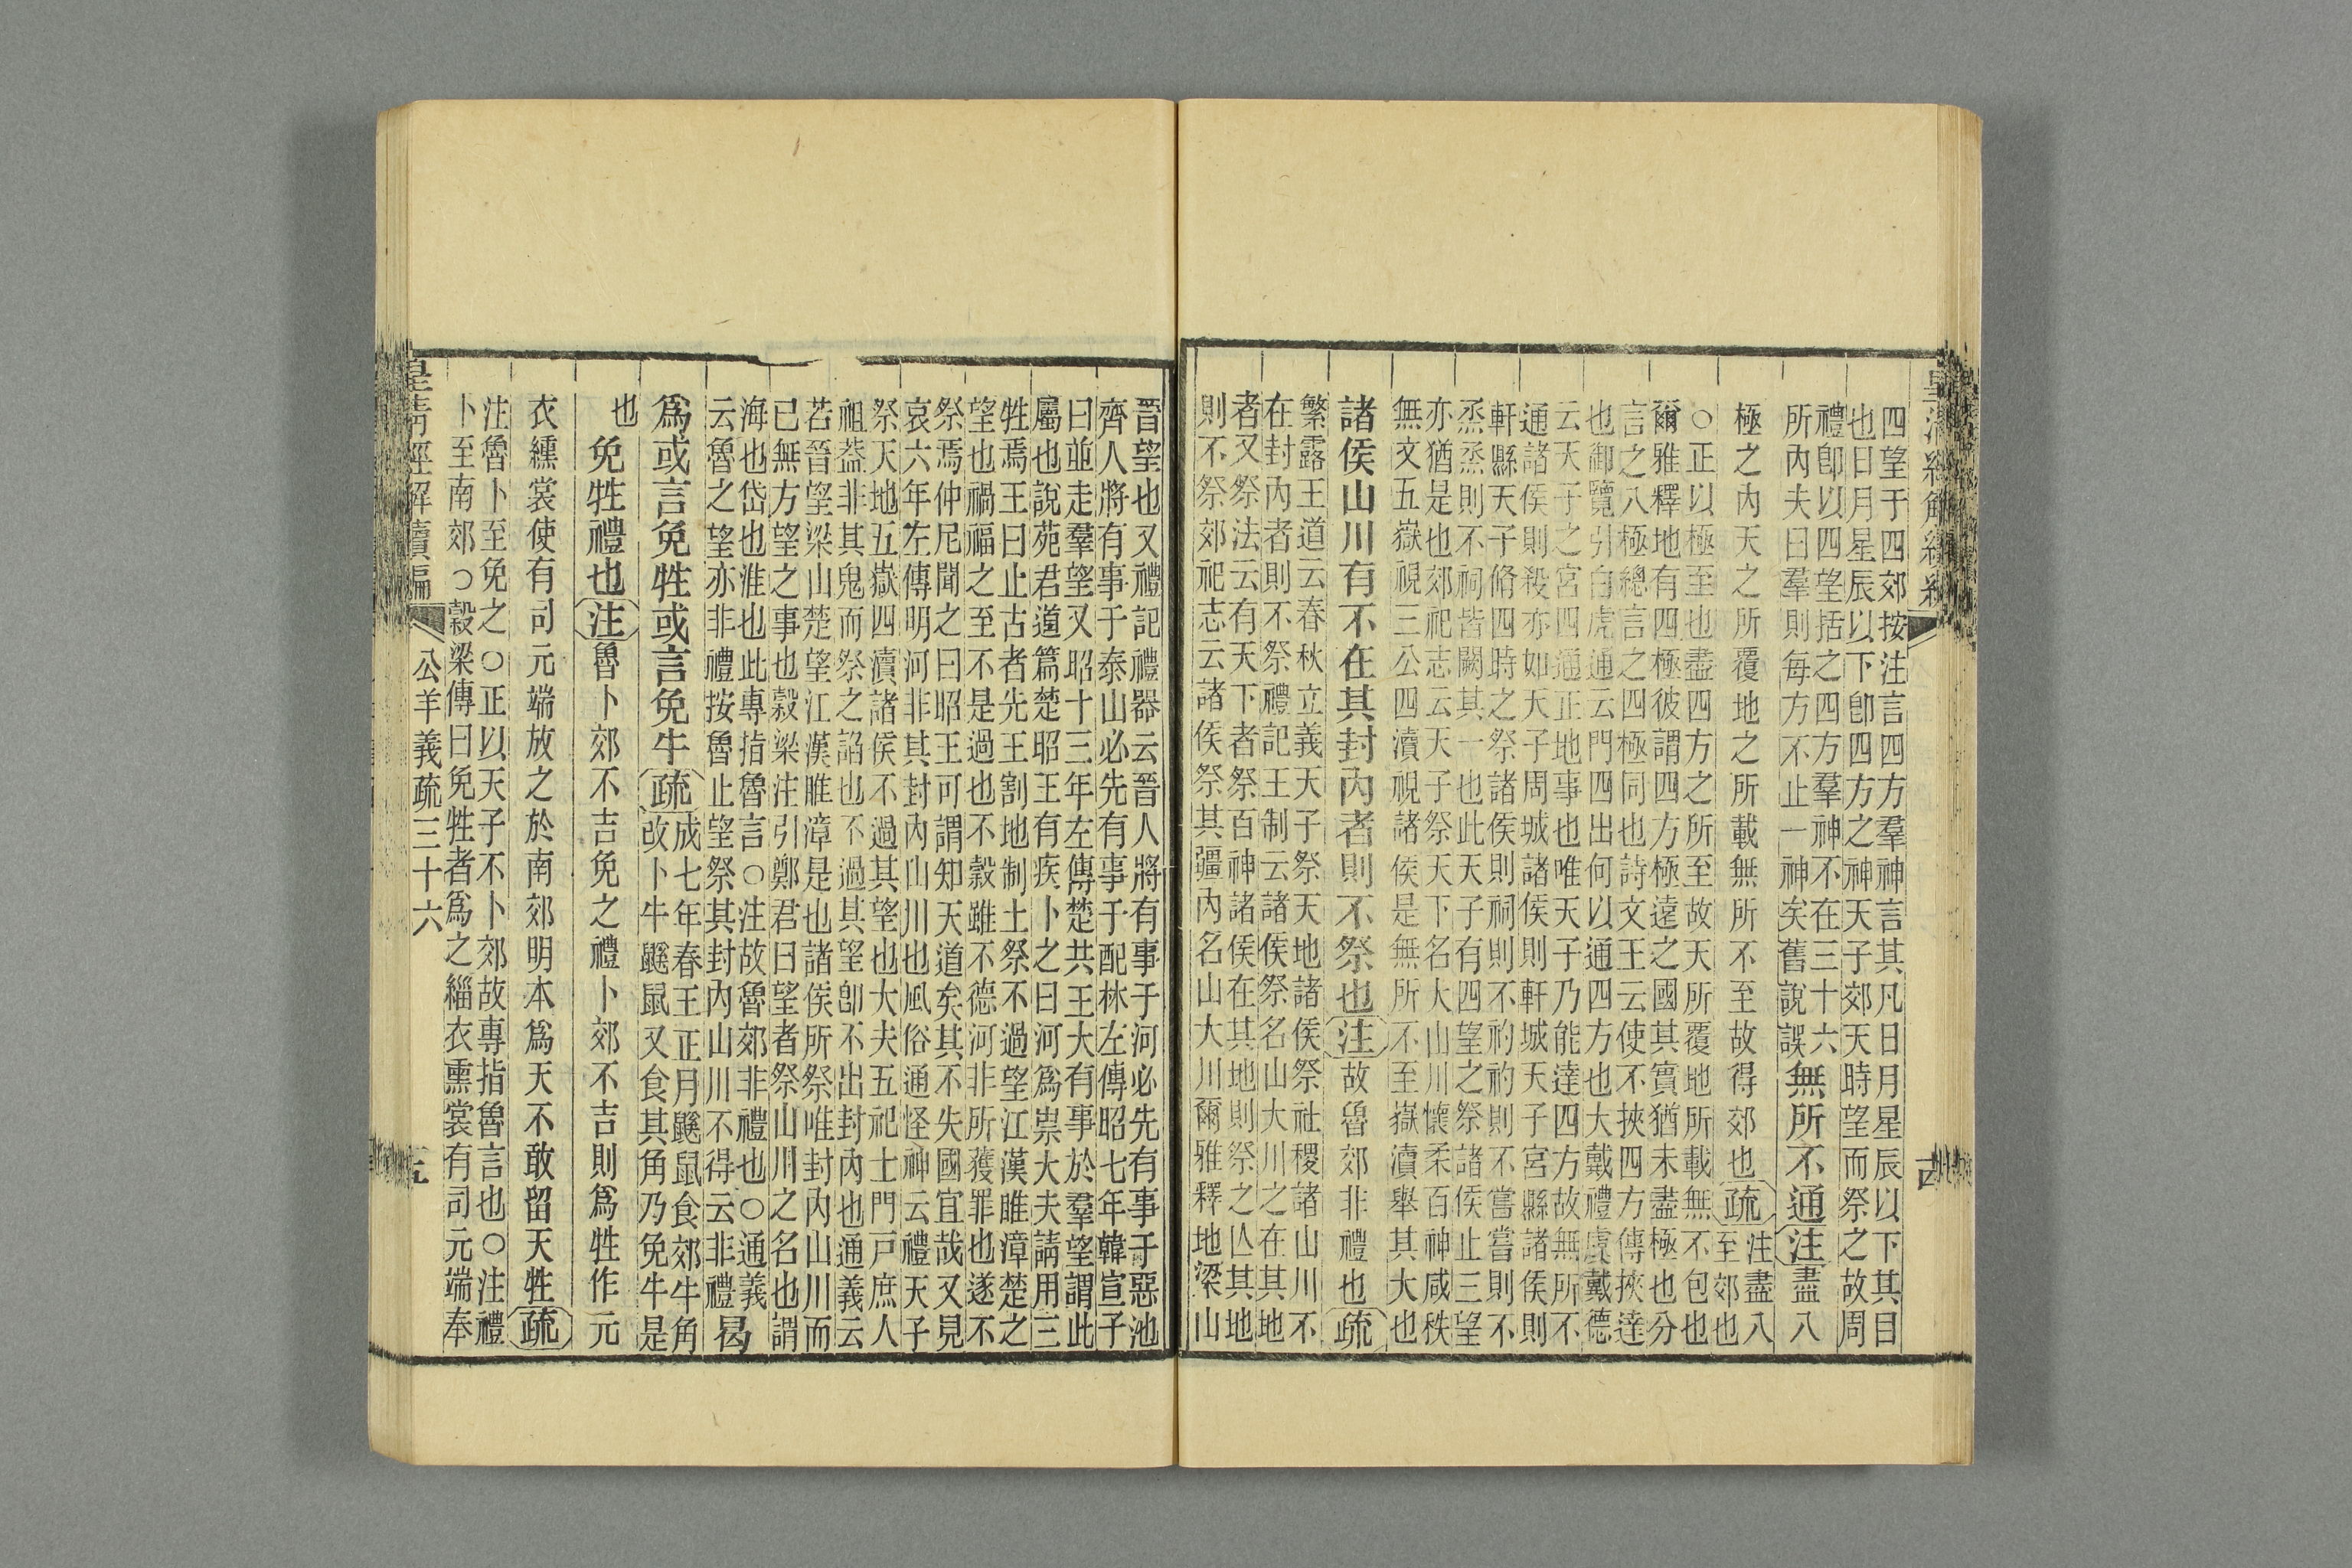 四望于四郊按注言四方羣神言其凡日月星辰以下其目
也日月星辰以下卽四方之神天子郊天時望而祭之故周
禮卽以四望括之四方羣神不在三十六
所內夫曰羣則每方不止一神矣舊說誤
無所不通注盡八
極之內天之所覆地之所載無所不至故得郊也疏
注盡八
至郊也
○正以極至也盡四方之所至故天所覆地所載無不包也
爾雅釋地有四極彼謂四方極遠之國其實猶未盡極也分
言之八極總言之四極同也詩文王云使不挾四方傳挾達
也御覽引白虎通云門四出何以通四方也大戴禮虔戴德
云天子之宮四通正地事也唯天子乃能達四方故無所不
通諸侯則殺亦如天子周城諸侯則軒城天子宮縣諸侯則
軒縣天子脩四時之祭諸侯則祠則不礿礿則不嘗嘗則不
烝烝則不祠皆闕其一也此天子有四望之祭諸侯止三望
亦猶是也郊祀志云天子祭天下名大山川懷柔百神咸秩
無文五嶽視三公四瀆視諸侯是無所不至嶽瀆舉其大也
諸侯山川有不在其封內者則不祭也注故魯郊非禮也疏
繁露王道云春秋立義天子祭天地諸侯祭社稷諸山川不
在封內者則不祭禮記王制云諸侯祭名山大川之在其地
者又祭法云有天下者祭百神諸侯在其地則祭之亾其地
則不祭郊祀志云諸侯祭其疆內名山大川爾雅釋地梁山
晉望也又禮記禮器云晉人將有事于河必先有事于惡池
齊人將有事于泰山必先有事于配林左傳昭七年韓宣子
曰並走羣望又昭十三年左傳楚共王大有事於羣望謂此
屬也說苑君道篇楚昭王有疾卜之曰河爲祟大夫請用三
牲焉王曰止古者先王割地制土祭不過望江漢睢漳楚之
望也禍福之至不是過也不穀雖不德河非所獲罪也遂不
祭焉仲尼聞之曰昭王可謂知天道矣其不失國宜哉又見
哀六年左傳明河非其封內山川也風俗通怪神云禮天子
祭天地五嶽四瀆諸侯不過其望也大夫五祀士門戸庶人
祖葢非其鬼而祭之諂也不過其望卽不出封內也通義云
若晉望梁山楚望江漢睢漳是也諸侯所祭唯封內山川而
已無方望之事也穀梁注引鄭君曰望者祭山川之名也謂
海也岱也淮也此專指魯言○注故魯郊非禮也○通義
云魯之望亦非禮按魯止望祭其封內山川不得云非禮
曷
爲或言免牲或言免牛疏
成七年春王正月鼷鼠食郊牛角
改卜牛鼷鼠又食其角乃免牛是
也
免牲禮也注魯卜郊不吉免之禮卜郊不吉則爲牲作元
衣纁裳使有司元端放之於南郊明本爲天不敢留天牲疏
注魯卜至免之○正以天子不卜郊故專指魯言也○注禮
卜至南郊○穀梁傳曰免牲者爲之緇衣熏裳有司元端奉
公羊義疏三十六